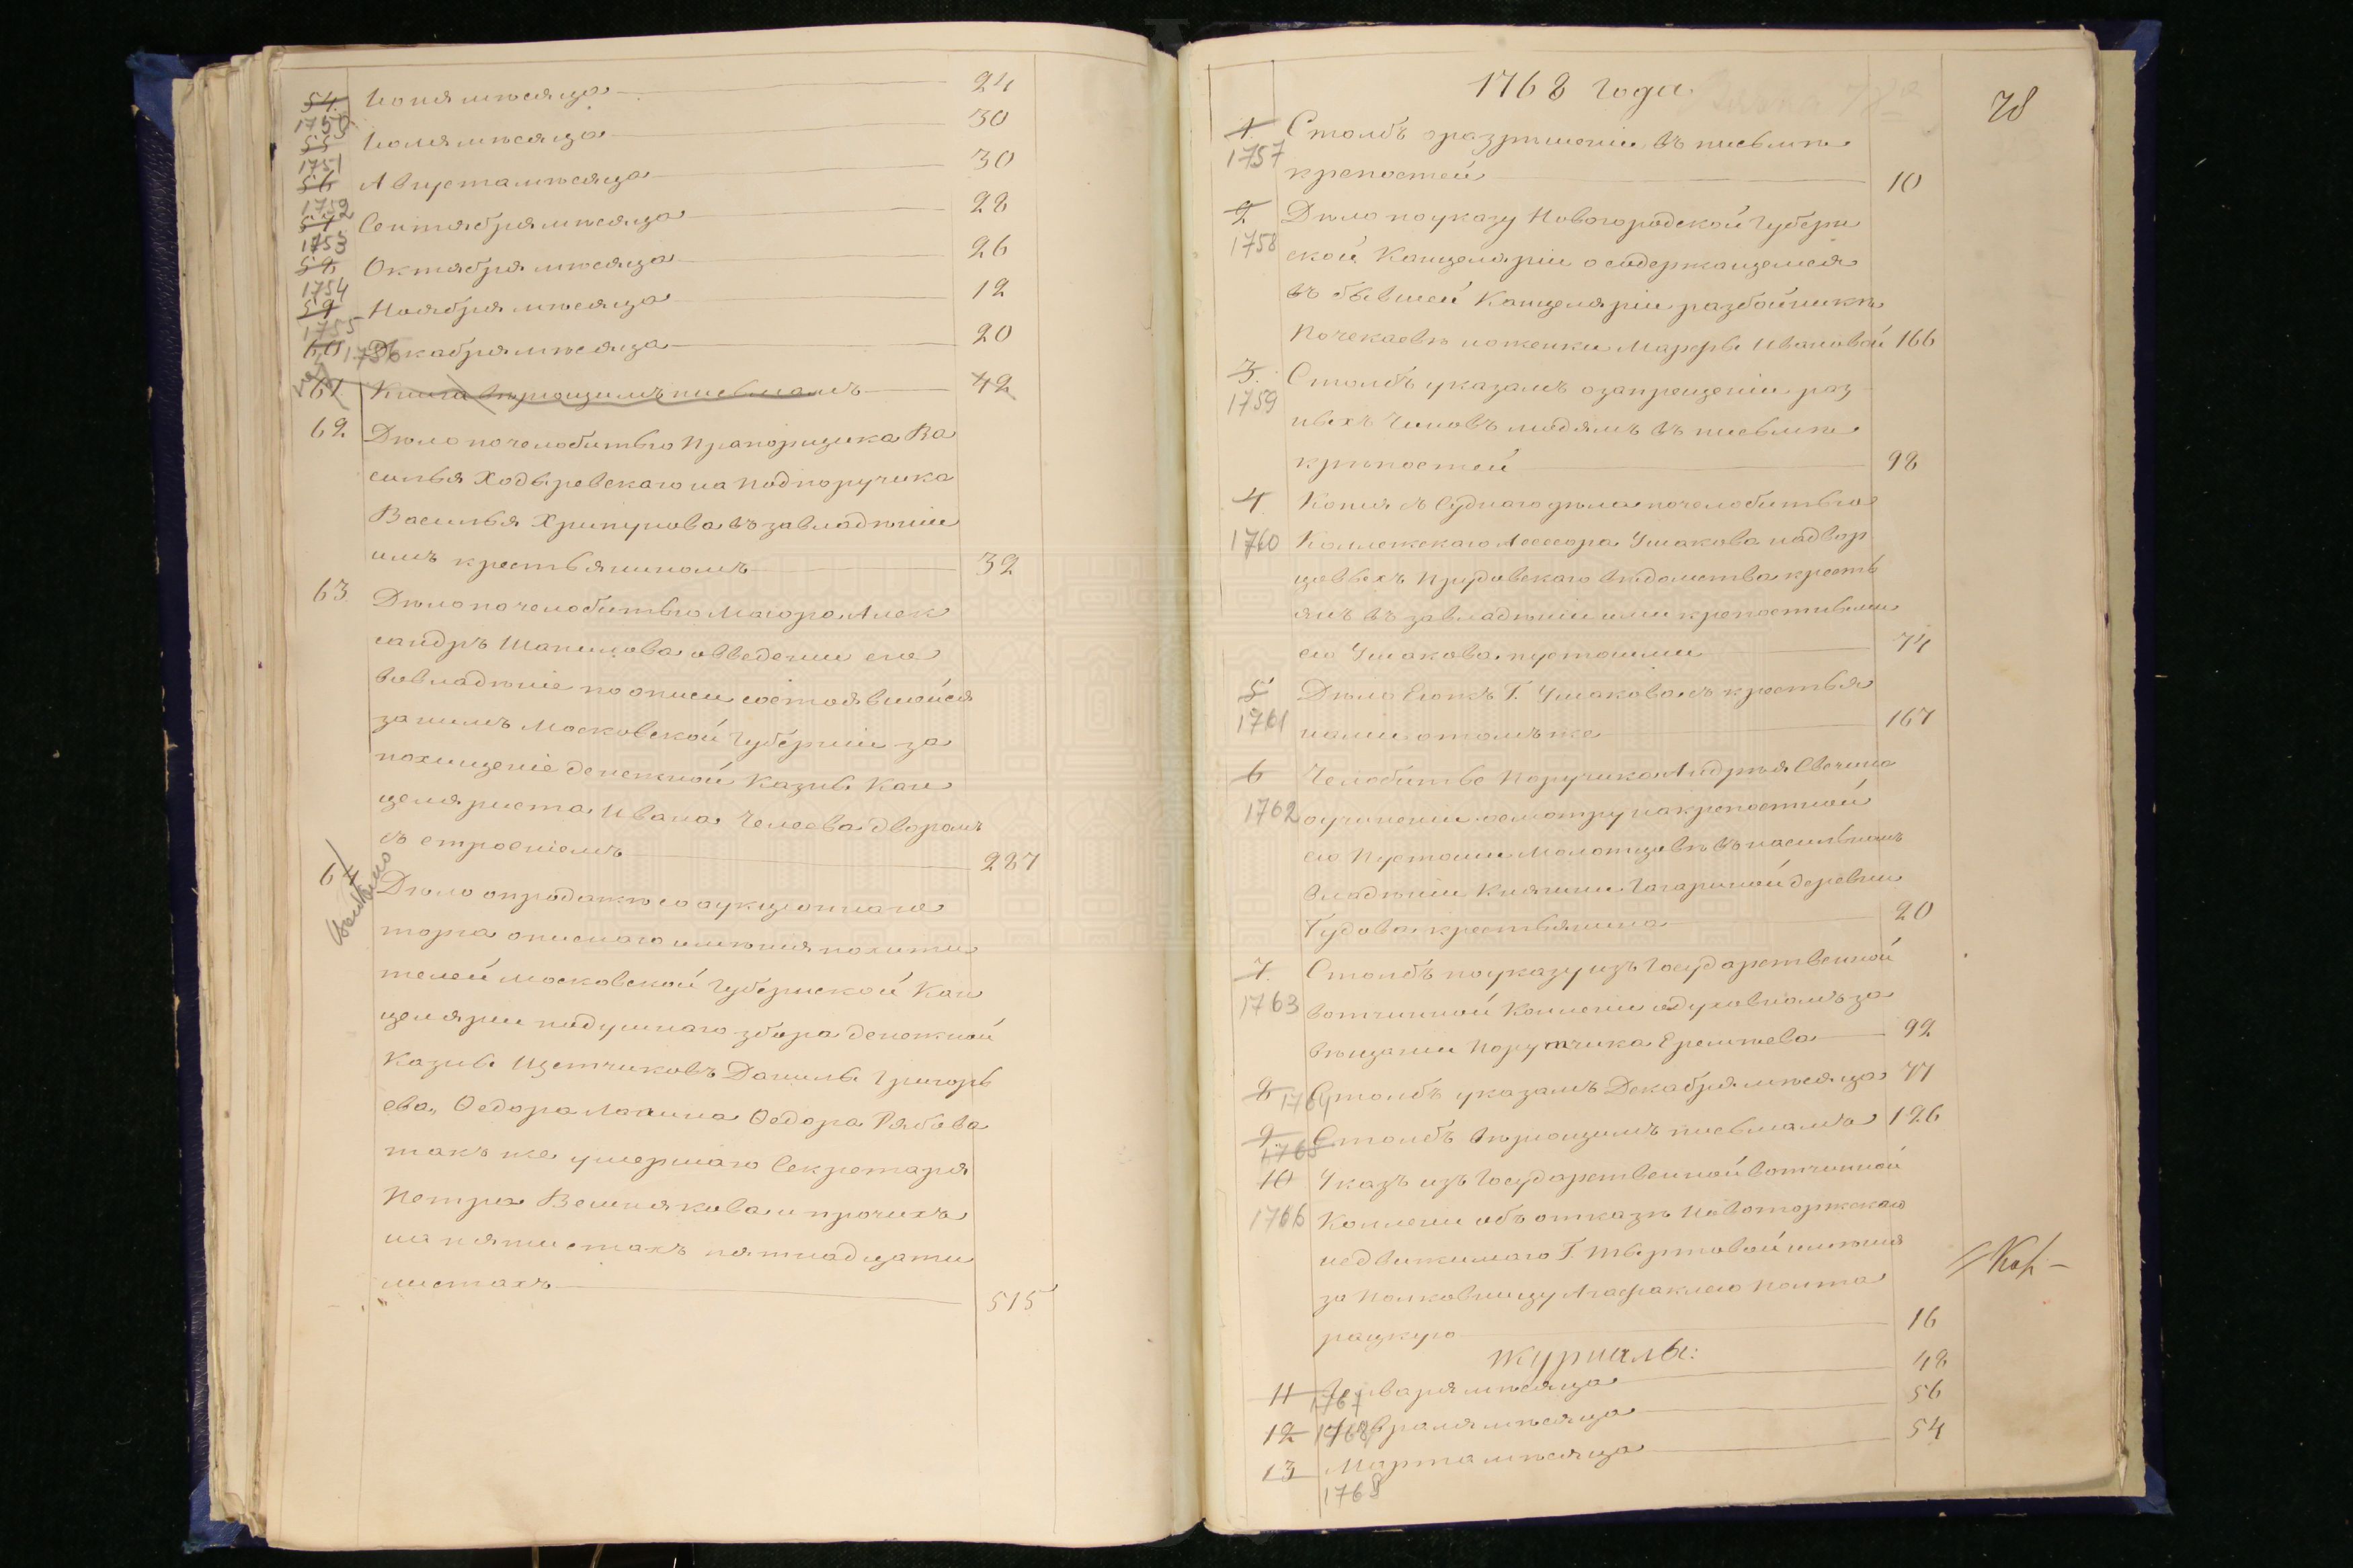 54. Іюня мѣсяца 24
1750
55 Іюля мѣсяца 30
1751
56 Августа мѣсяца 30
1752
57 Сентября мѣсяца 28
1753
58 Октября мѣсяца 26
1754
59 Ноября мѣсяца 12
1755
60 Декабря мѣсяца 20
1756
61 Книга вѣрющимъ письмамъ 42
62 Дѣло по челобитью Прапорщика Ва
силья Ходыревскаго на Подпоручика
Василья Хрипунова въ завладѣніи
имъ крестьяниномъ 32
63 Дѣло по челобитью Маіора Алек
сандръ Шапилова о введении его
вовладѣніе по описи состоявшойся
за нимъ Московской Губерніи за
похищеніе денежной Казны Кан
целяриста Ивана Челеева дворомъ
съ строеніемъ 287
64 Дѣло о продажѣ со аукціоннаго
торга описнаго имѣния похити
телей Московской Губернской Кан
целярии подушнаго збора денежной
Казны Щетчиковъ Данилы Григорь
ева, Ѳедора Лапина Ѳедора Рябова
такъ же умершаго Секретаря
Петра Вешнякова и прочихъ
на пяти стахъ пятнадцати
листахъ 515
1768 года.
78
1. Столбъ о разрѣшеніи въ письмѣ
1757
крепостей 10
2 Дѣло по указу Новогородской Губерн
1758
ской Канцеляріи о содержащемся
въ бывшей Канцеляріи разбойникѣ
Почекаевѣ и о женки Марфы Ивановой 166
3. Столбъ указамъ о запрещеніи раз
1759
ныхъ Чиновъ людямъ въ письмѣ
крѣпостей 98
4. Копия съ Суднаго дѣла по челобитью
1760 Коллежскаго Асессора Ушакова на двор
цовыхъ Прудовскаго вѣдомства кресть
янъ въ завладѣніи ими крепостными
его Ушакова пустошми 74
5 Дѣло Его жъ Г. Ушакова съ крестья
1761 нами о томъ же 167
6 Челобитье Поручика Андрѣя Свечина
1762 о учинении осмотру на крепостной
его Пустоши Молотцовѣ въ насильномъ
владѣніи Княгини Гагариной деревни
Гудова крестьянина 20
7. Столбъ по указу изъ Государственной
1763 вотчинной Коллегіи о духовномъ за
вѣщании Порутчика Еремѣева 92
8 1764 Столбъ указамъ Декабря мѣсяца 77
9 Столбъ вѣрющимъ письмамъ 126
1765
10 Указъ изъ Государственной вотчинной
1766 Коллегии объ отказѣ Новоторжскаго
недвижимаго Г. Твертовой имѣния
за Полковницу Агафаклею Полта
рацкую 16
Журналы:
11 1767 Генваря мѣсяца 48
12 1768 Февраля мѣсяца 56
13 Марта мѣсяца 54
1768